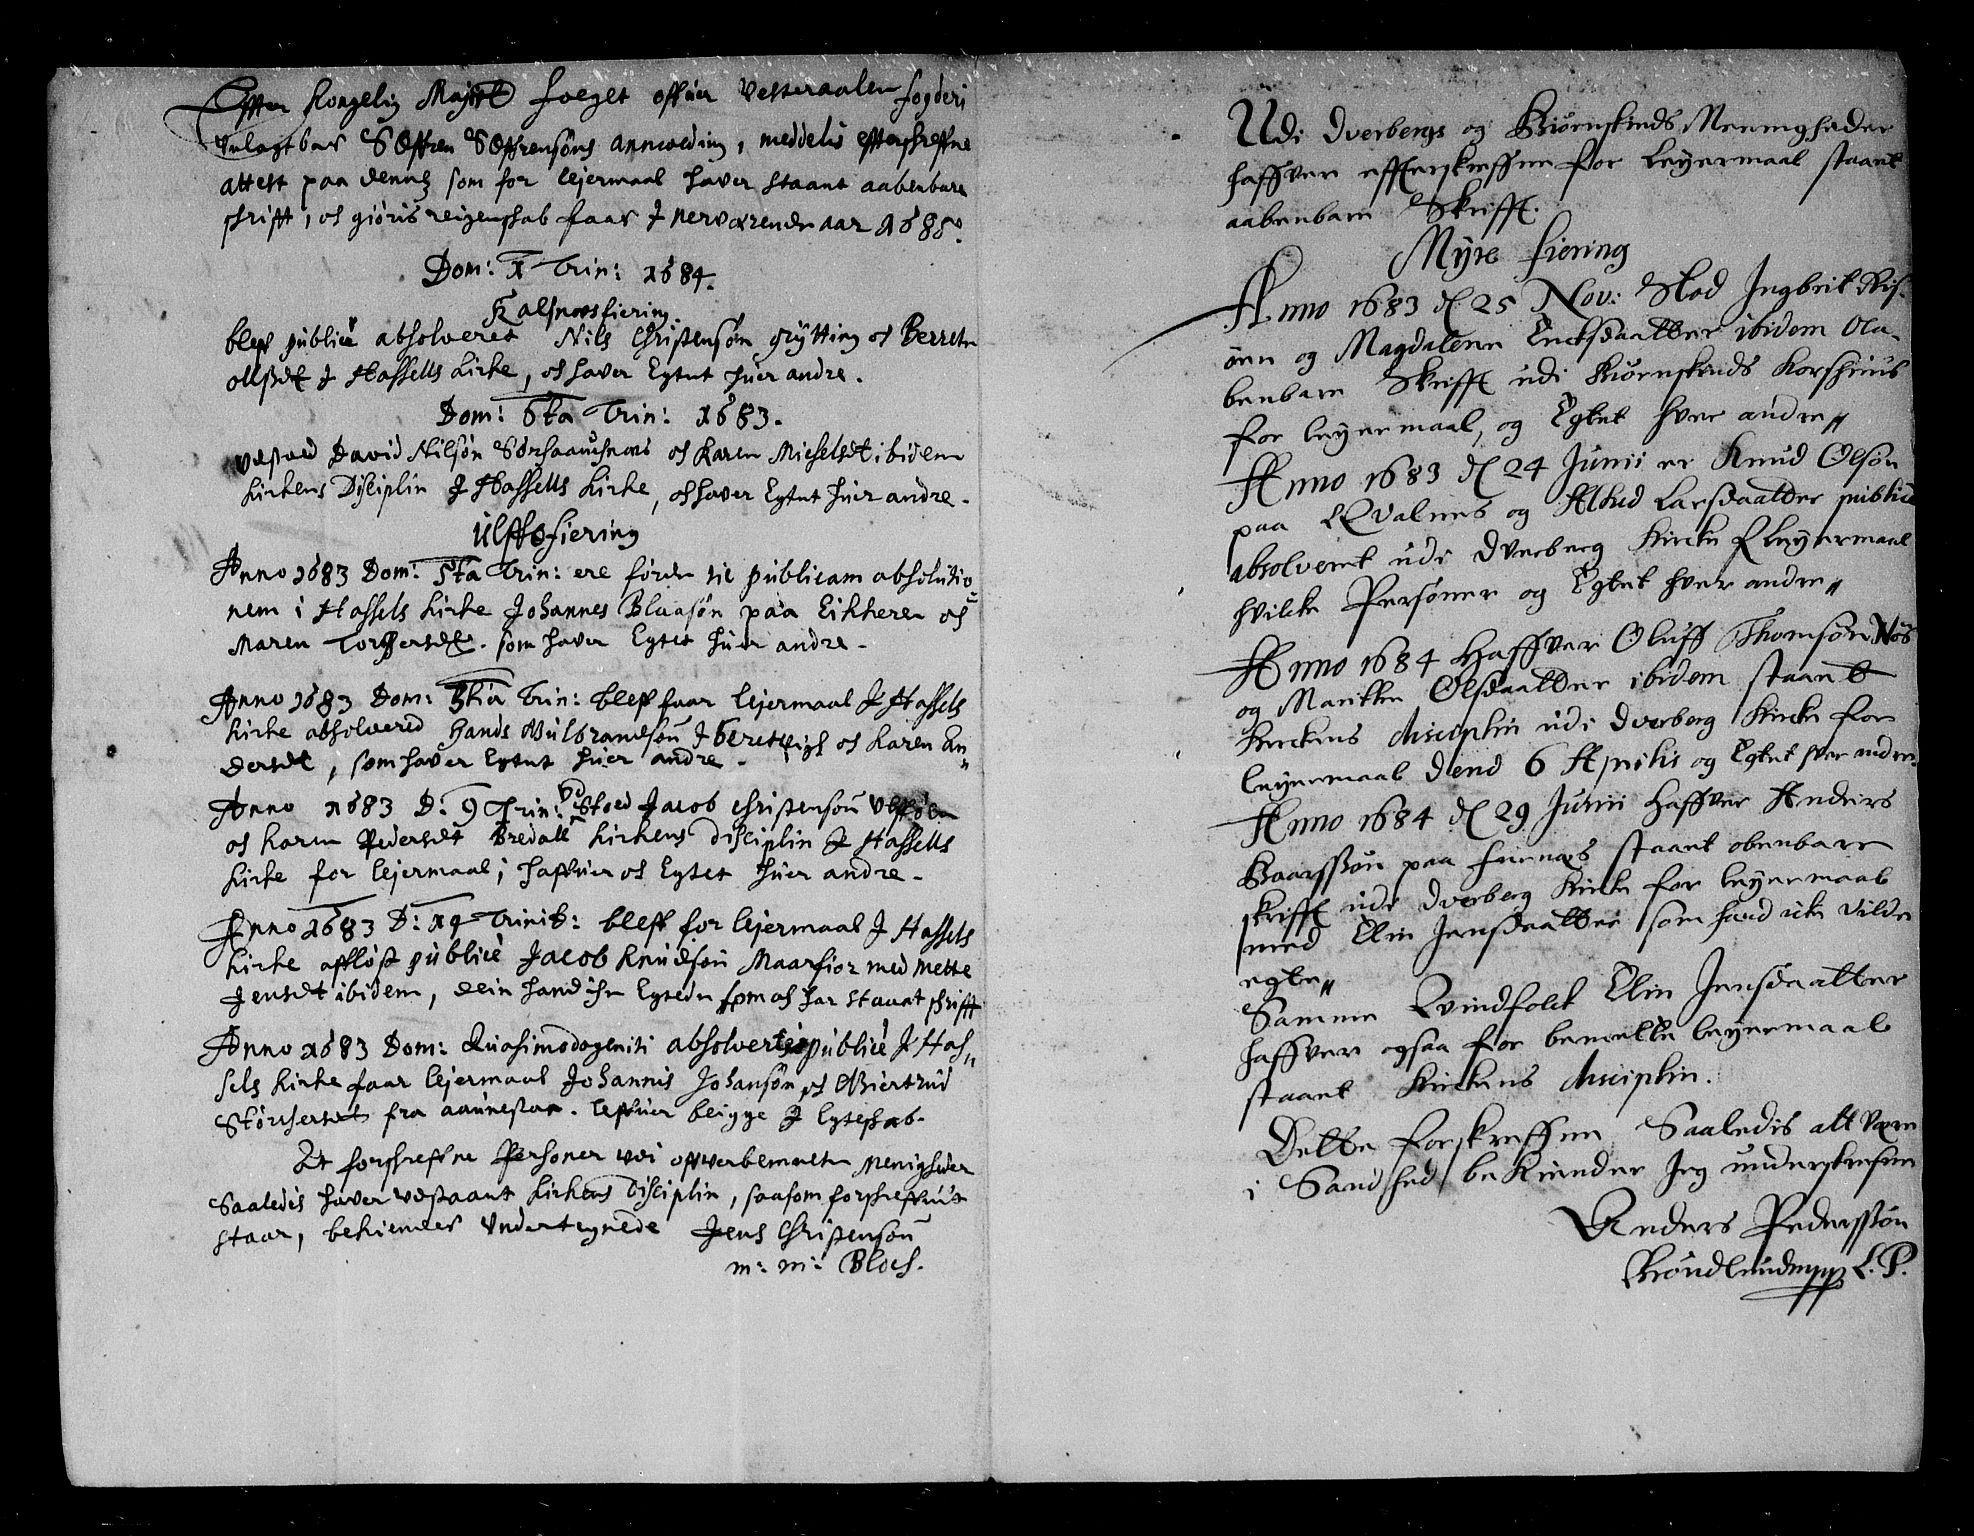 Effter Kongelig Maÿst foeget offuer Vesteraalen fogderi
Velagtbar Søffren Søffrensøns annvoding, meddelis effterschreffne
attest paa dennẽ som for leÿermaal haver staaet aabenbare
schrifft, och giøris reigenschab faar J nerværende aar 1685.
Dom: X Trin: 1684.
Kalsnæsfiering.
bleff publicè absolveret Nils Christensøn Grÿtting och Berrete
ollsdt J Hassells Kirke, och haver Egtet huer andre.
Dom: 6ta Trin: 1683.
Vdstoed David Nilsøn Sørsaaudsnæs och Karen Michelsdt ibidem
Kirkens Disciplin J Hassells Kirke, och haver Egtet huer andre.
Ulfføfiering
Anno 1683 Dom: 5ta Trin: ere førde til publicam absolutio
nem i Hassels Kirke Johannes Blaasøn paa Eikheren och
Maren Torgersdt. som haver Egtet huer andre.
Anno 1683 Dom: 3tia Trin: bleff faar leÿermaal J Hassels
Kirke absolvered Hands Gulbrandsøn J och Karen An
dersdt, som haver Egtet huer andre.
Anno 1683 D: 9 Trin: vdStoed Jacob Christensøn Ulfføen
och Karen Pedersdt Bredall Kirkens Disciplin J Hassells
Kirke for leÿermaal; haffuer och Egtet huer andre.
Anno 1683 D: 19 Trinit: bleff for leÿermaal J Hassels
Kirke affløst publicè Jacob Knudsøn Maarsior med Mette
Jensdt ibidem, dein hand ichr Egtede som och har staaet schrifft
Anno 1683 Dom: Quasimodogeniti absolvertis publicè J Has„
sels Kirke faar leÿermaal Johannis Johansøn och Giertrud
Størchersdt fra aaunestar. leffuer beigge J Egteschab.
At forschreffne Personer vdi offverbemelte Menigheder
Saaledis haver vdstaaet Kirkens Disciplin, saasom forschreffuit
staar, bekiender Undertegnede Jens Christensøn
m: m: Bloch.
Udi Dverbergs og Biørnskinds Meenigheder
haffver effterskreffne for leÿermaal staaet
aabenbare Skrifft.
Myre fiering
Anno 1683 d 25 Nov: Stod Ingbrit Ris-
øen og Magdalene Ericksdaatter ibidem Oba-
benbare Skrifft udi Biørnskinds Korshuus
for leÿermaal, og Egtet hver andre„
Anno 1683 d 24 Junii er Knud Olsøn
paa Qvalnes og Alhed Larsdaatter publicè
absolveret udi Dverberg Kircke f leÿermaal
hvilcke Persøner og Egtet hver andre„
Anno 1684 Haffver Oluff Thomsøn Nøs
og Maritte Olsdaatter ibidem staaet
Kirckens disciplin udi Dverberg Kircke for
leÿermaal dend 6 Aprilis og Egtet hver andre.
Anno 1684 d 29 Junii Haffver Anders
Baarssøn paa fornæs staaet obenbare
skrifft udi Dverberg Kircke for leÿermaal
med Elin Jensdaatter som hand icke vilde
egte„
Samme Qvindfolck Elin Jensdaatter
haffver ogsaa for bemelte leÿermaal
staaet Kirckens disciplin.
Dette forskreffne Saaledis alt være
i Sandhed beKiender Jeg underskrefne
Anders Pederssøn
Brøndlundmpp L. P.